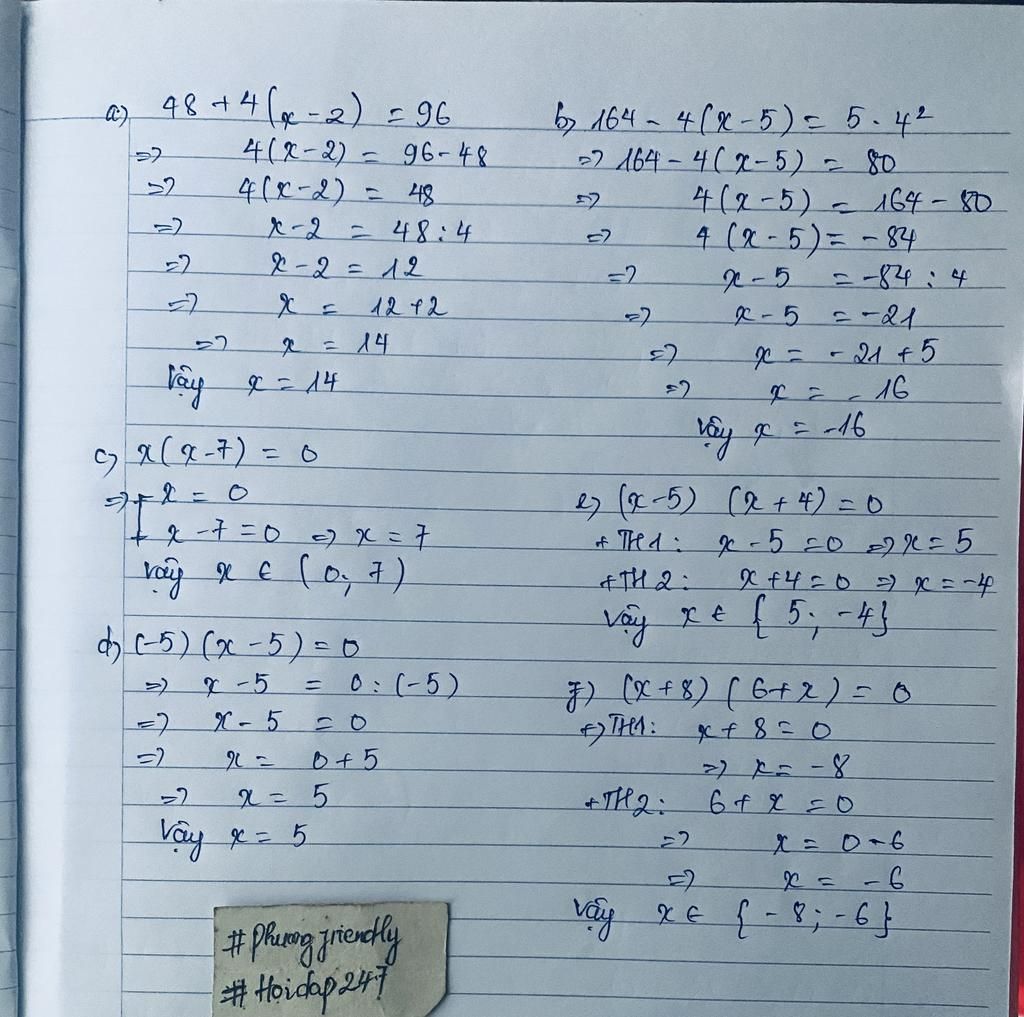 a) 48 + 4(x - 2) = 96
=> 4(x - 2) = 96 - 48
=> 4(x - 2) = 48
=> x - 2 = 48 : 4
=> x - 2 = 12
=> x = 12 + 2
=> x = 14
Vậy x = 14
b) 164 - 4(x - 5) = 5 . 4²
=> 164 - 4(x - 5) = 80
=> 4(x - 5) = 164 - 80
=> 4(x - 5) = -84
=> x - 5 = -84 : 4
=> x - 5 = -21
=> x = -21 + 5
=> x = -16
Vậy x = -16
c) x(x - 7) = 0
=> [ x = 0
x - 7 = 0 => x = 7
Vậy x ∈ (0; 7)
d) (-5)(x - 5) = 0
=> x - 5 = 0 : (-5)
=> x - 5 = 0
=> x = 0 + 5
=> x = 5
Vậy x = 5
e) (x - 5) (x + 4) = 0
+ TH1: x - 5 = 0 => x = 5
+ TH2: x + 4 = 0 => x = -4
Vậy x ∈ { 5; -4}
f) (x + 8) (6 + x) = 0
+) TH1: x + 8 = 0
=> x = -8
+ TH2: 6 + x = 0
=> x = 0 - 6
=> x = -6
Vậy x ∈ { -8; -6}
# Phuong friendly
# Hoidap247